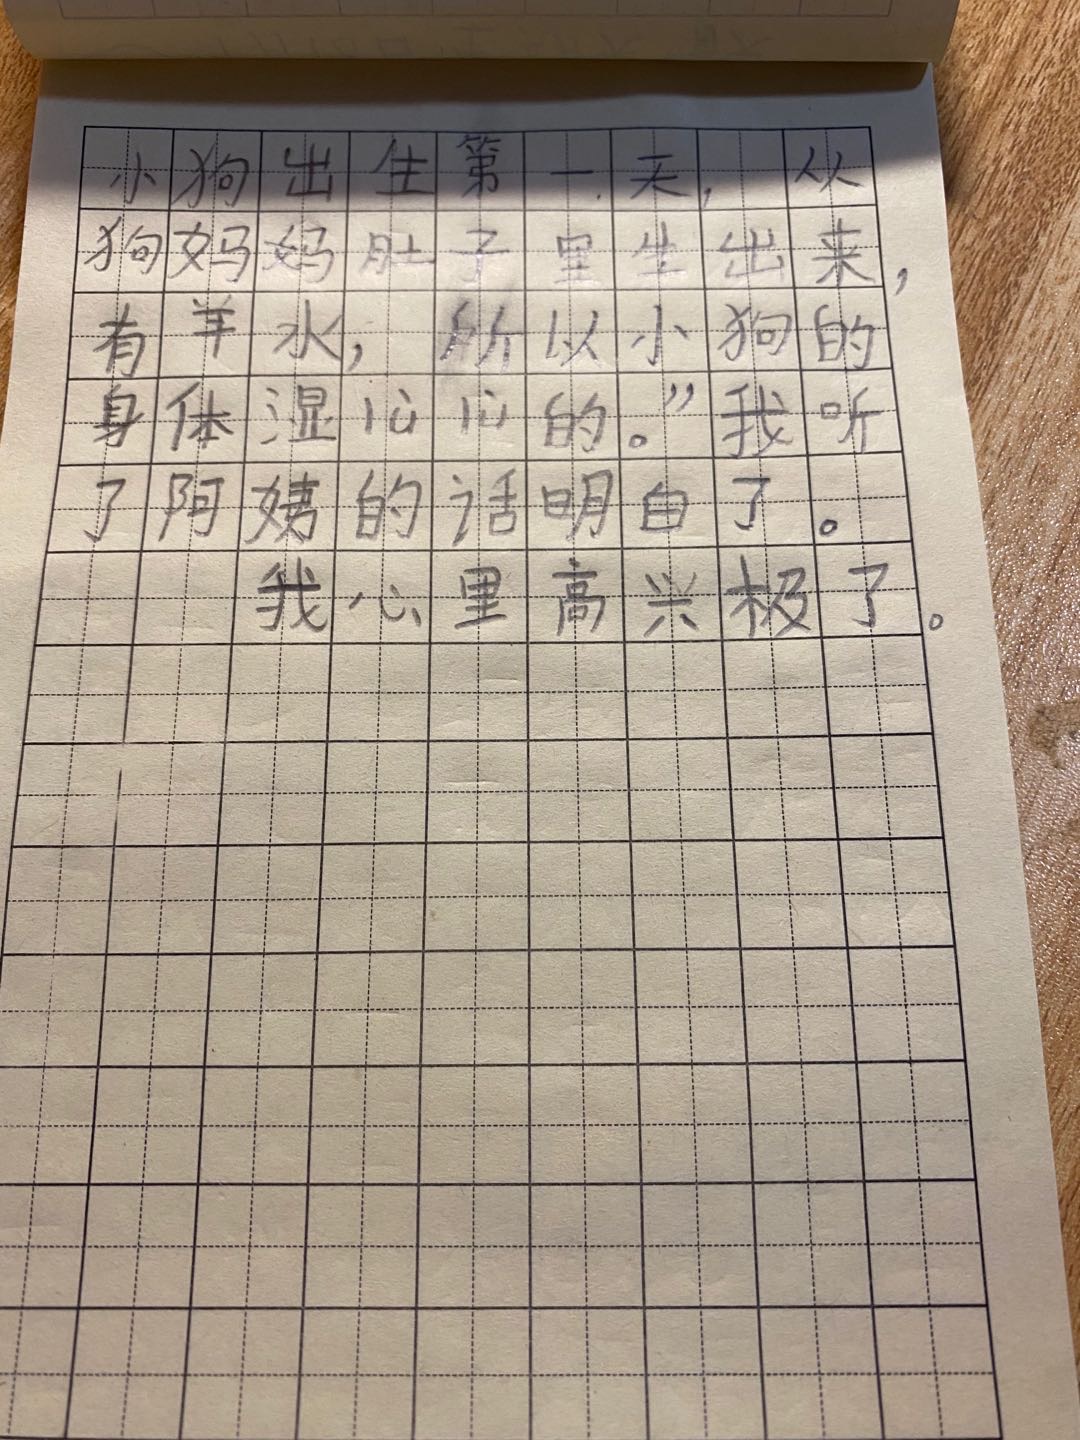 小狗出生第一天,从
狗妈妈肚子里生出来,
有羊水,所以小狗的
身体湿心心的。”我听
了阿姨的话明自了。
我心里高兴极了。